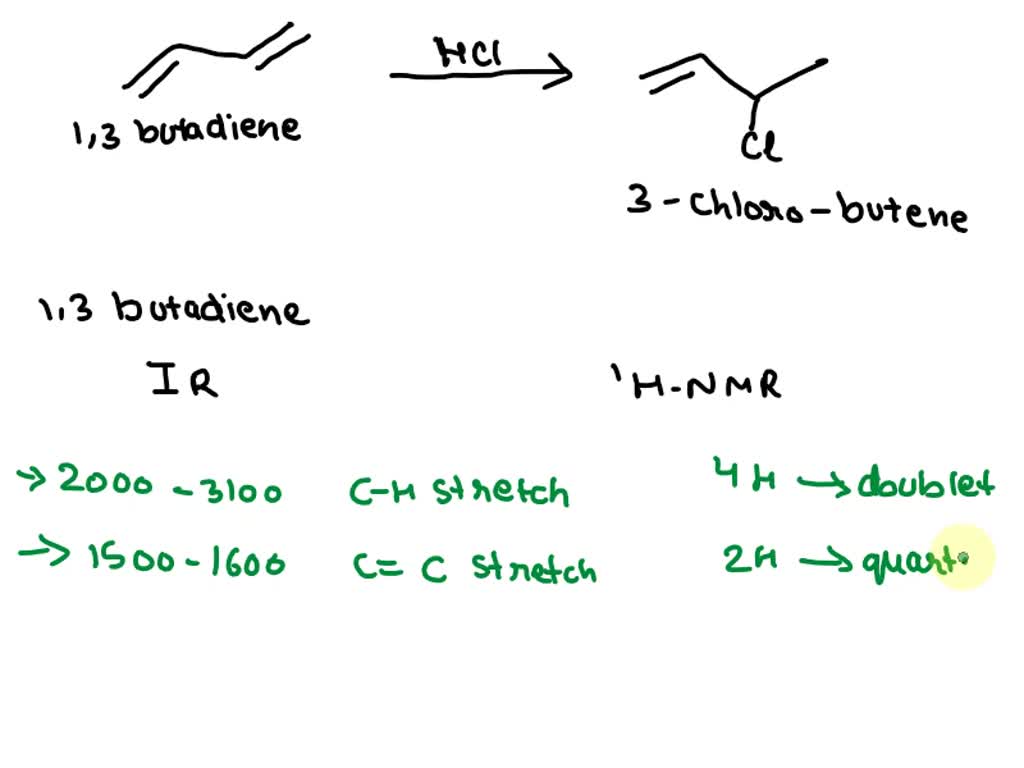 HCl
1,3 butadiene
Cl
3-chloro-butene
1,3 butadiene
IR
¹H-NMR
→ 2000-3100 C-H stretch 4H → doublet
→ 1500-1600 C=C stretch 2H → quart